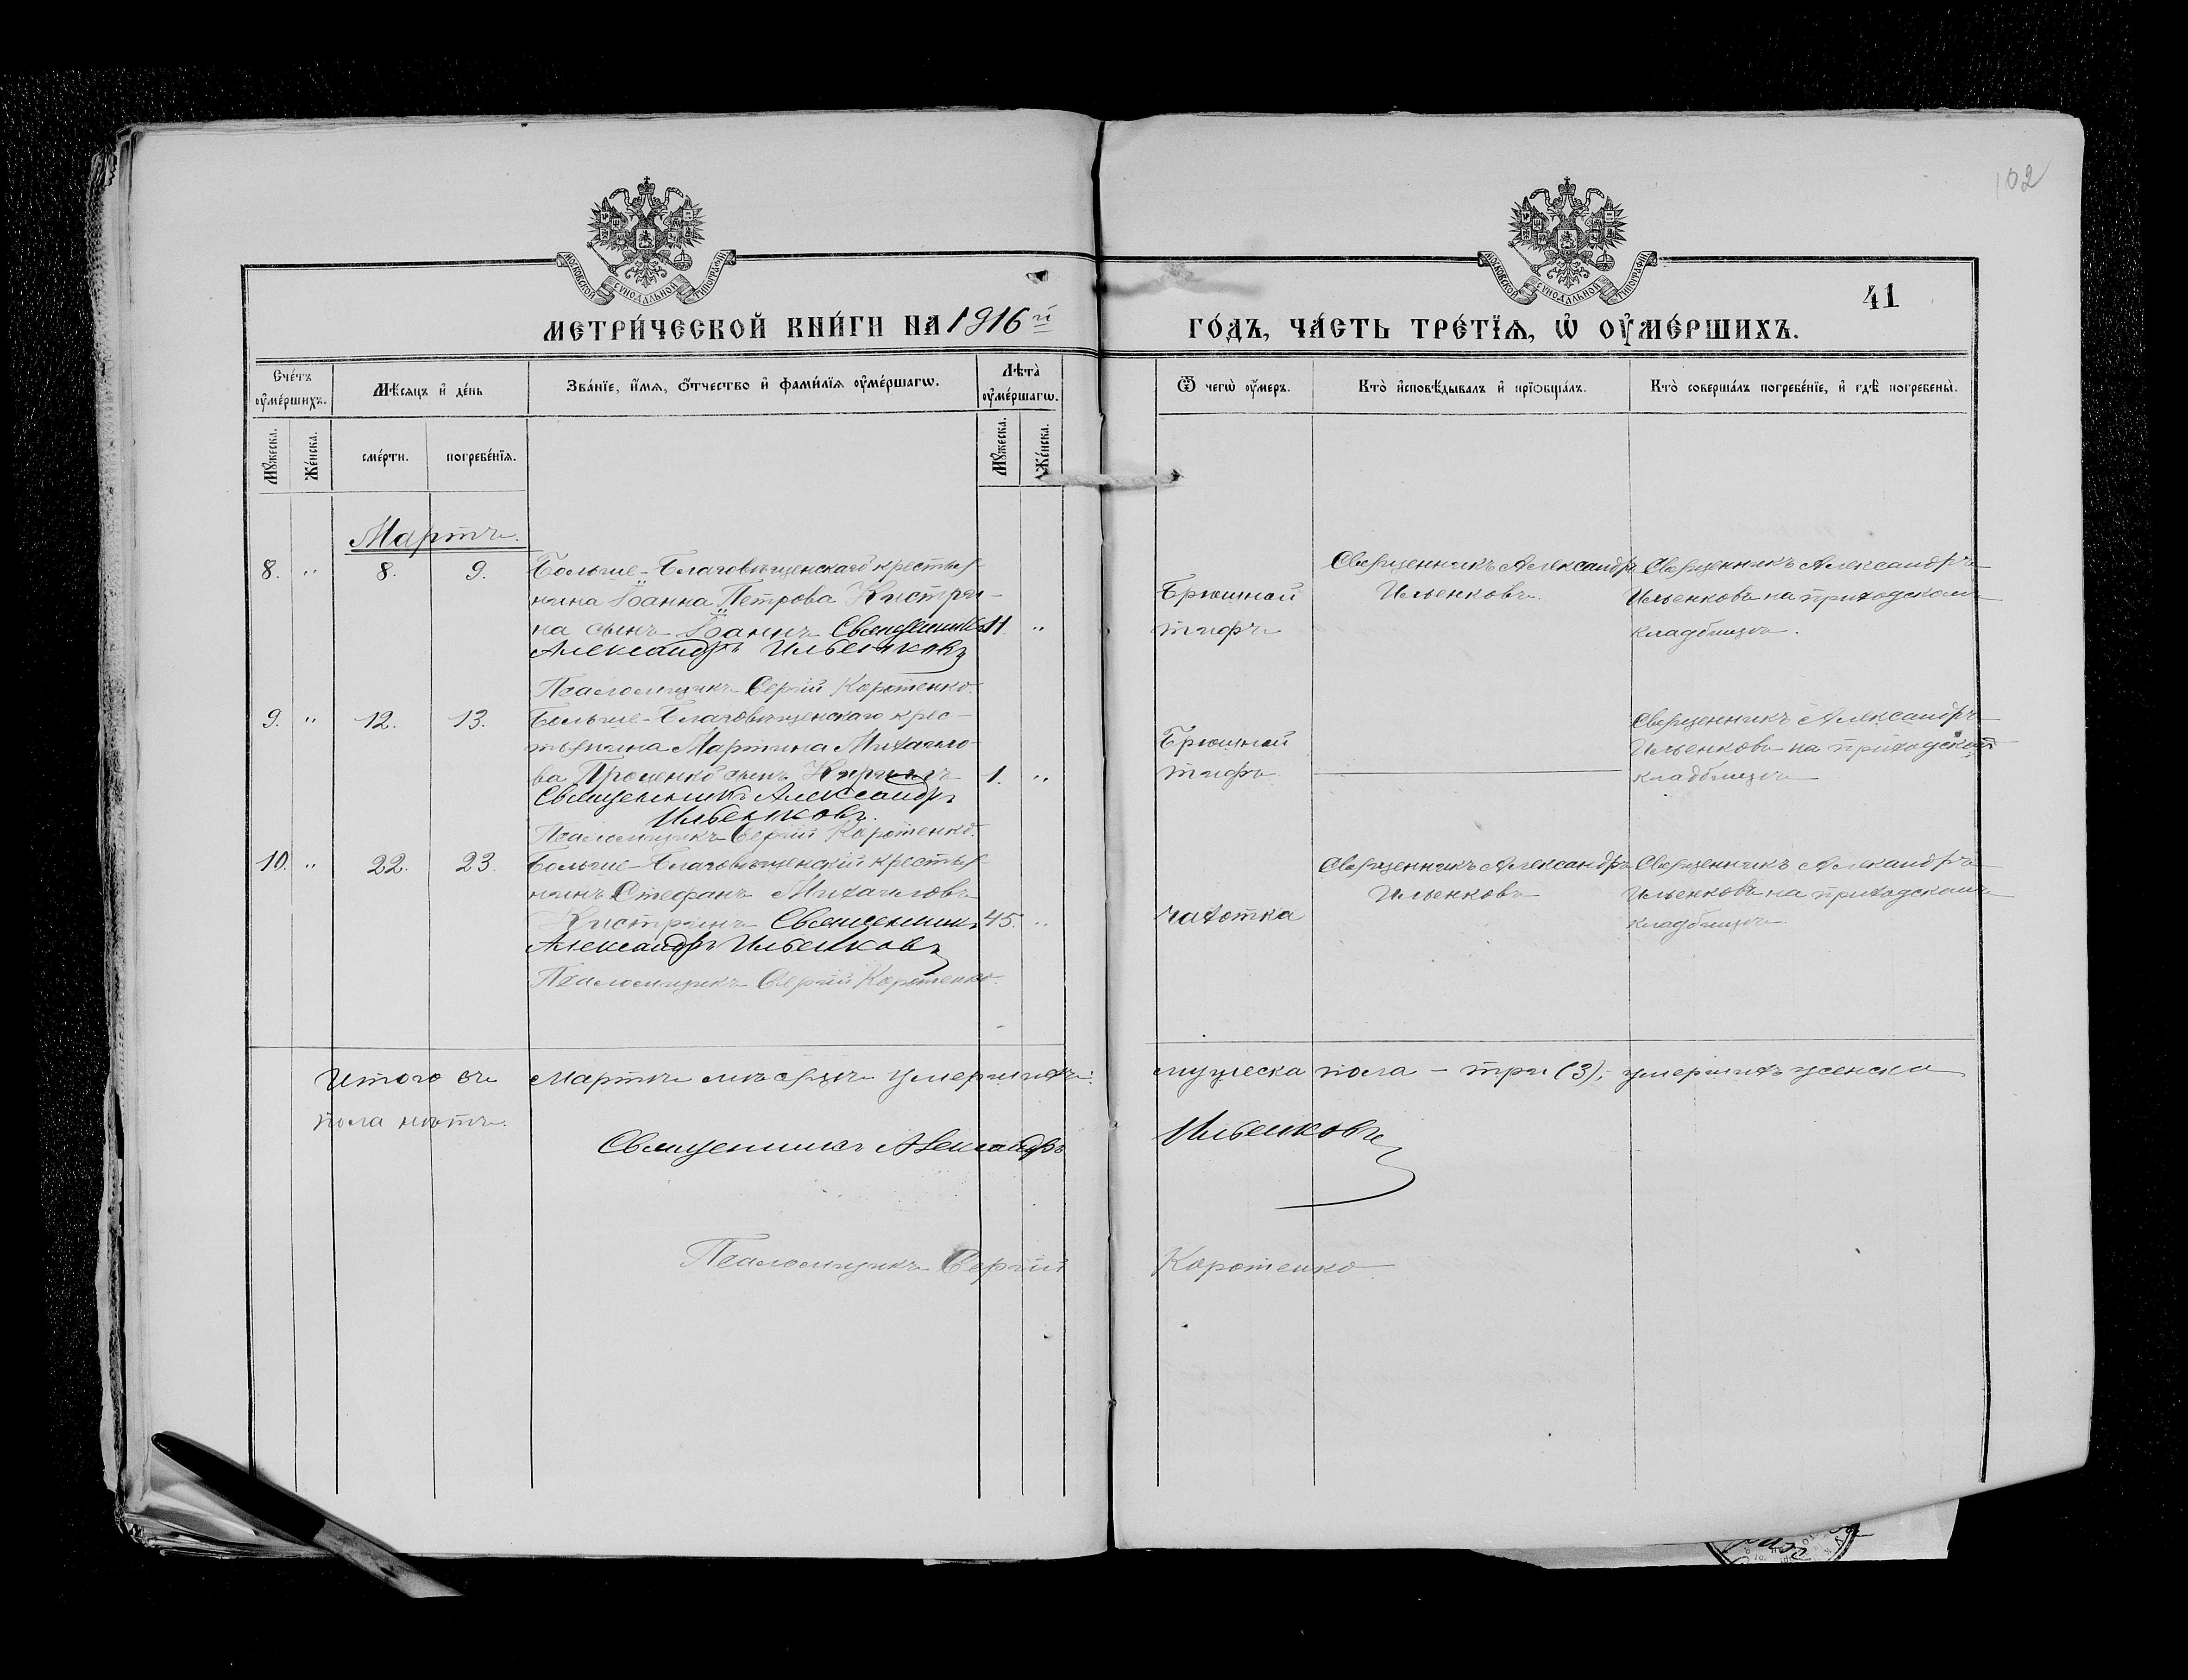 102
МОСКОВСКОЙ СУНОДАЛЬНОЙ ТИПОГРАФІИ
МОСКОВСКОЙ СУНОДАЛЬНОЙ ТИПОГРАФІИ
41
МЕТРИ́ЧЕСКОЙ КНИ́ГИ НА 1916й
ГО́ДЪ, ЧА́СТЬ ТРЕ́ТЇѦ, Ѡ҆ ОУ҆МЕ́РШИХЪ.
Сче́тъ оу҆ме́ршихъ.
Мѣ́сѧцъ и҆ де́нь
Зва́нїе, и҆́мѧ, ѻ҆́тчество и҆ фами́лїѧ оу҆ме́ршагѡ.
Лѣта̀ оу҆ме́ршагѡ.
Ѿ чегѡ̀ оу҆́меръ.
Кто̀ и҆сповѣ́дывалъ и҆ прїѻбща́лъ.
Кто̀ соверша́лъ погребе́нїе, и҆ гдѣ̀ погребены̀.
Мꙋ́жеска.
Же́нска.
сме́рти.
погребе́нїѧ.
Мꙋ́жеска.
Же́нска.
Мартъ.
8. " 8. 9. Больше-Благовѣщенскаго крестья-
нина Іоанна Петрова Кистри-
на сынъ Іоаннъ Священникъ 11. "
Александръ Ильенковъ
Псаломщикъ Сергій Коротенко.
Брюшной
тифъ
Священникъ Александръ
Ильенковъ.
Священникъ Александръ
Ильенковъ на приходскомъ
кладбищѣ.
9. " 12. 13. Больше-Благовѣщенскаго крес-
тьянина Мартина Михайло-
ва Проценко сынъ Кириллъ 1. "
Священникъ Александръ
Ильенковъ.
Псаломщикъ Сергій Коротенко.
Брюшной
тифъ
Священникъ Александръ
Ильенковъ на приходском
кладбищѣ
10. " 22. 23. Больше-Благовѣщенскій крестья-
нинъ Стефанъ Михайловъ
Кистринъ Священникъ 45. "
Александръ Ильенковъ
Псаломщикъ Сергій Коротенко.
чахотка
Священникъ Александръ
Ильенковъ
Священникъ Алекандръ
Ильенковъ на приходскомъ
кладбищѣ.
Итого въ Мартѣ мѣсяцѣ умершихъ: мужеска пола - три (3), умершихъ женска
пола нѣтъ.
Священникъ Александръ Ильенковъ
Псаломщикъ Сергій Коротенко.